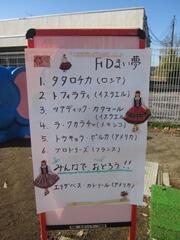 FDまい夢
1. タタロチカ (ロシア)
2. トフィラティ (イスラエル)
3. マアディック・カタマール
(イスラエル)
4. ラ・クカラチャ (メキシコ)
5. トウキョウ・ポルカ (アメリカ)
6. ブロドリーズ (フランス)
みんなで、おどろう!!
エリザベス・カドリール (アメリカ)